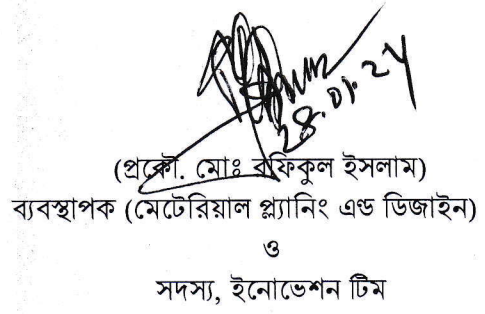 28.01.24
(প্রকৌ. মোঃ রফিকুল ইসলাম)
ব্যবস্থাপক (মেটেরিয়াল প্ল্যানিং এন্ড ডিজাইন)
ও
সদস্য, ইনোভেশন টিম